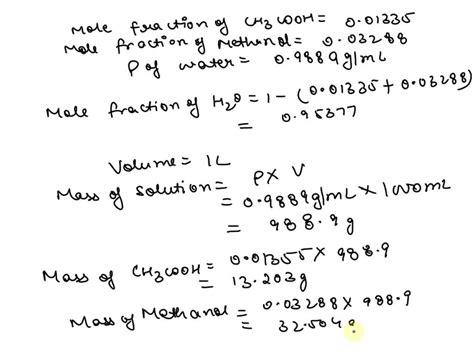 Mole fraction of CH3COOH = 0.01335
Mole fraction of Methanol = 0.03288
ρ of water = 0.9889g/mL
Mole fraction of H2O = 1 - (0.01335 + 0.03288)
= 0.95377
Volume = 1L
Mass of solution = ρ x V
= 0.9889g/mL x 1000mL
= 988.9g
Mass of CH3COOH = 0.01355 x 988.9
= 13.203g
Mass of Methanol = 0.03288 x 988.9
= 32.504g